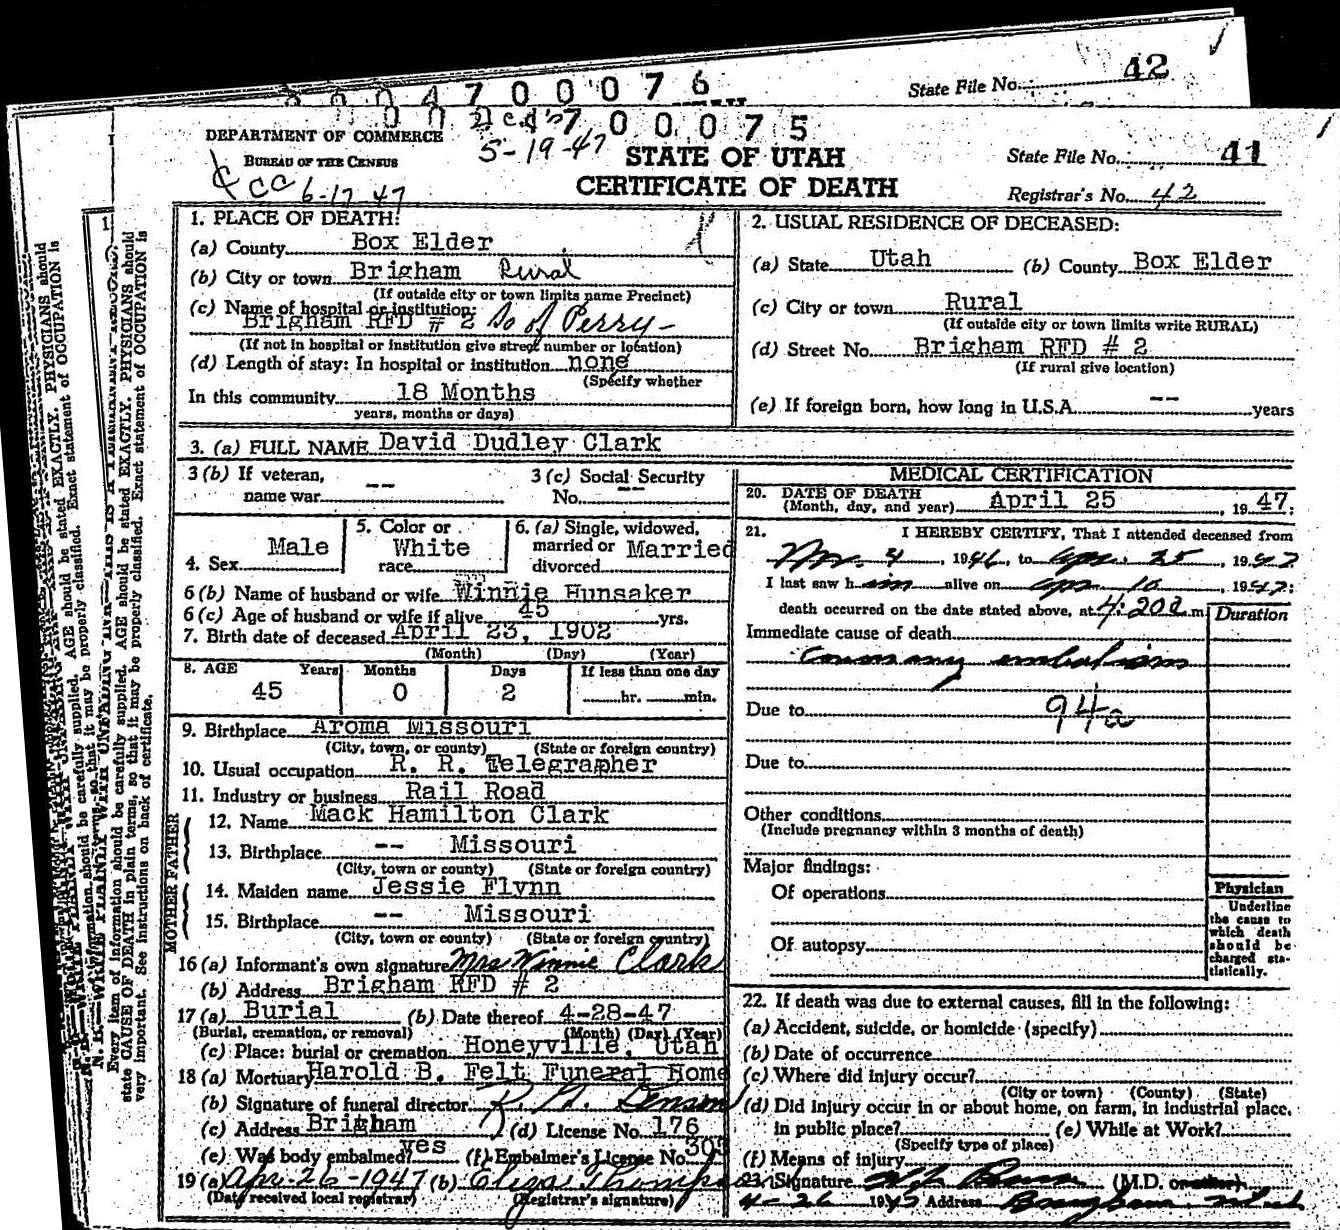 42
State File No.
00470076
00470075
2 cc's
5-19-47
DEPARTMENT OF COMMERCE
BUREAU OF THE CENSUS
cc 6-17 47
STATE OF UTAH
CERTIFICATE OF DEATH
State File No. 41
Registrar's No. 42
1. PLACE OF DEATH:
(a) County Box Elder
(b) City or town Brigham Rural
(If outside city or town limits name Precinct)
(c) Name of hospital or institution:
Brigham RFD # 2 So of Perry-
(If not in hospital or institution give street number or location)
(d) Length of stay: In hospital or institution none
(Specify whether
In this community 18 Months
years, months or days)
2. USUAL RESIDENCE OF DECEASED:
(a) State Utah (b) County Box Elder
(c) City or town Rural
(If outside city or town limits write RURAL)
(d) Street No. Brigham RFD # 2
(If rural give location)
(e) If foreign born, how long in U.S.A. -- years
3. (a) FULL NAME David Dudley Clark
3 (b) If veteran,
name war --
3 (c) Social Security
No. --
4. Sex Male
5. Color or
race White
6. (a) Single, widowed,
married or Married
divorced
6 (b) Name of husband or wife Winnie Hunsaker
6 (c) Age of husband or wife if alive 45 yrs.
7. Birth date of deceased April 23, 1902
(Month) (Day) (Year)
8. AGE Years Months Days If less than one day
45 0 2 hr. min.
9. Birthplace Aroma Missouri
(City, town, or county) (State or foreign country)
10. Usual occupation R. R. Telegrapher
11. Industry or business Rail Road
FATHER
12. Name Mack Hamilton Clark
13. Birthplace -- Missouri
(City, town or county) (State or foreign country)
MOTHER
14. Maiden name Jessie Flynn
15. Birthplace -- Missouri
(City, town or county) (State or foreign country)
16 (a) Informant's own signature Mrs Winnie Clark
(b) Address Brigham RFD # 2
17 (a) Burial (b) Date thereof 4-28-47
(Burial, cremation, or removal) (Month) (Day) (Year)
(c) Place: burial or cremation Honeyville, Utah
18 (a) Mortuary Harold B. Felt Funeral Home
(b) Signature of funeral director
(c) Address Brigham (d) License No. 176
(e) Was body embalmed? yes (f) Embalmer's License No. 305
19 (a) Apr-26-1947 (b) Eliza Thompson
(Date received local registrar) (Registrar's signature)
MEDICAL CERTIFICATION
20. DATE OF DEATH
(Month, day, and year) April 25, 1947;
21. I HEREBY CERTIFY, That I attended deceased from
Nov. 4, 1946, to Apr. 25, 1947
I last saw him alive on Apr 10, 1947;
death occurred on the date stated above, at 4:20a m
Duration
Immediate cause of death
Coronary embolism
Due to 94a
Due to
Other conditions
(Include pregnancy within 3 months of death)
Major findings:
Of operations
Of autopsy
Physician
Underline
the cause to
which death
should be
charged sta-
tistically.
22. If death was due to external causes, fill in the following:
(a) Accident, suicide, or homicide (specify)
(b) Date of occurrence
(c) Where did injury occur?
(City or town) (County) (State)
(d) Did injury occur in or about home, on farm, in industrial place,
in public place? (e) While at Work?
(Specify type of place)
(f) Means of injury
23. Signature (M.D. or other)
4-26 1947 Address Brigham, Utah
N. B.—WRITE PLAINLY WITH UNFADING INK—THIS IS A PERMANENT RECORD.
Every item of information should be carefully supplied. AGE should be stated EXACTLY. PHYSICIANS should
state CAUSE OF DEATH in plain terms, so that it may be properly classified. Exact statement of OCCUPATION is
very important. See instructions on back of certificate.